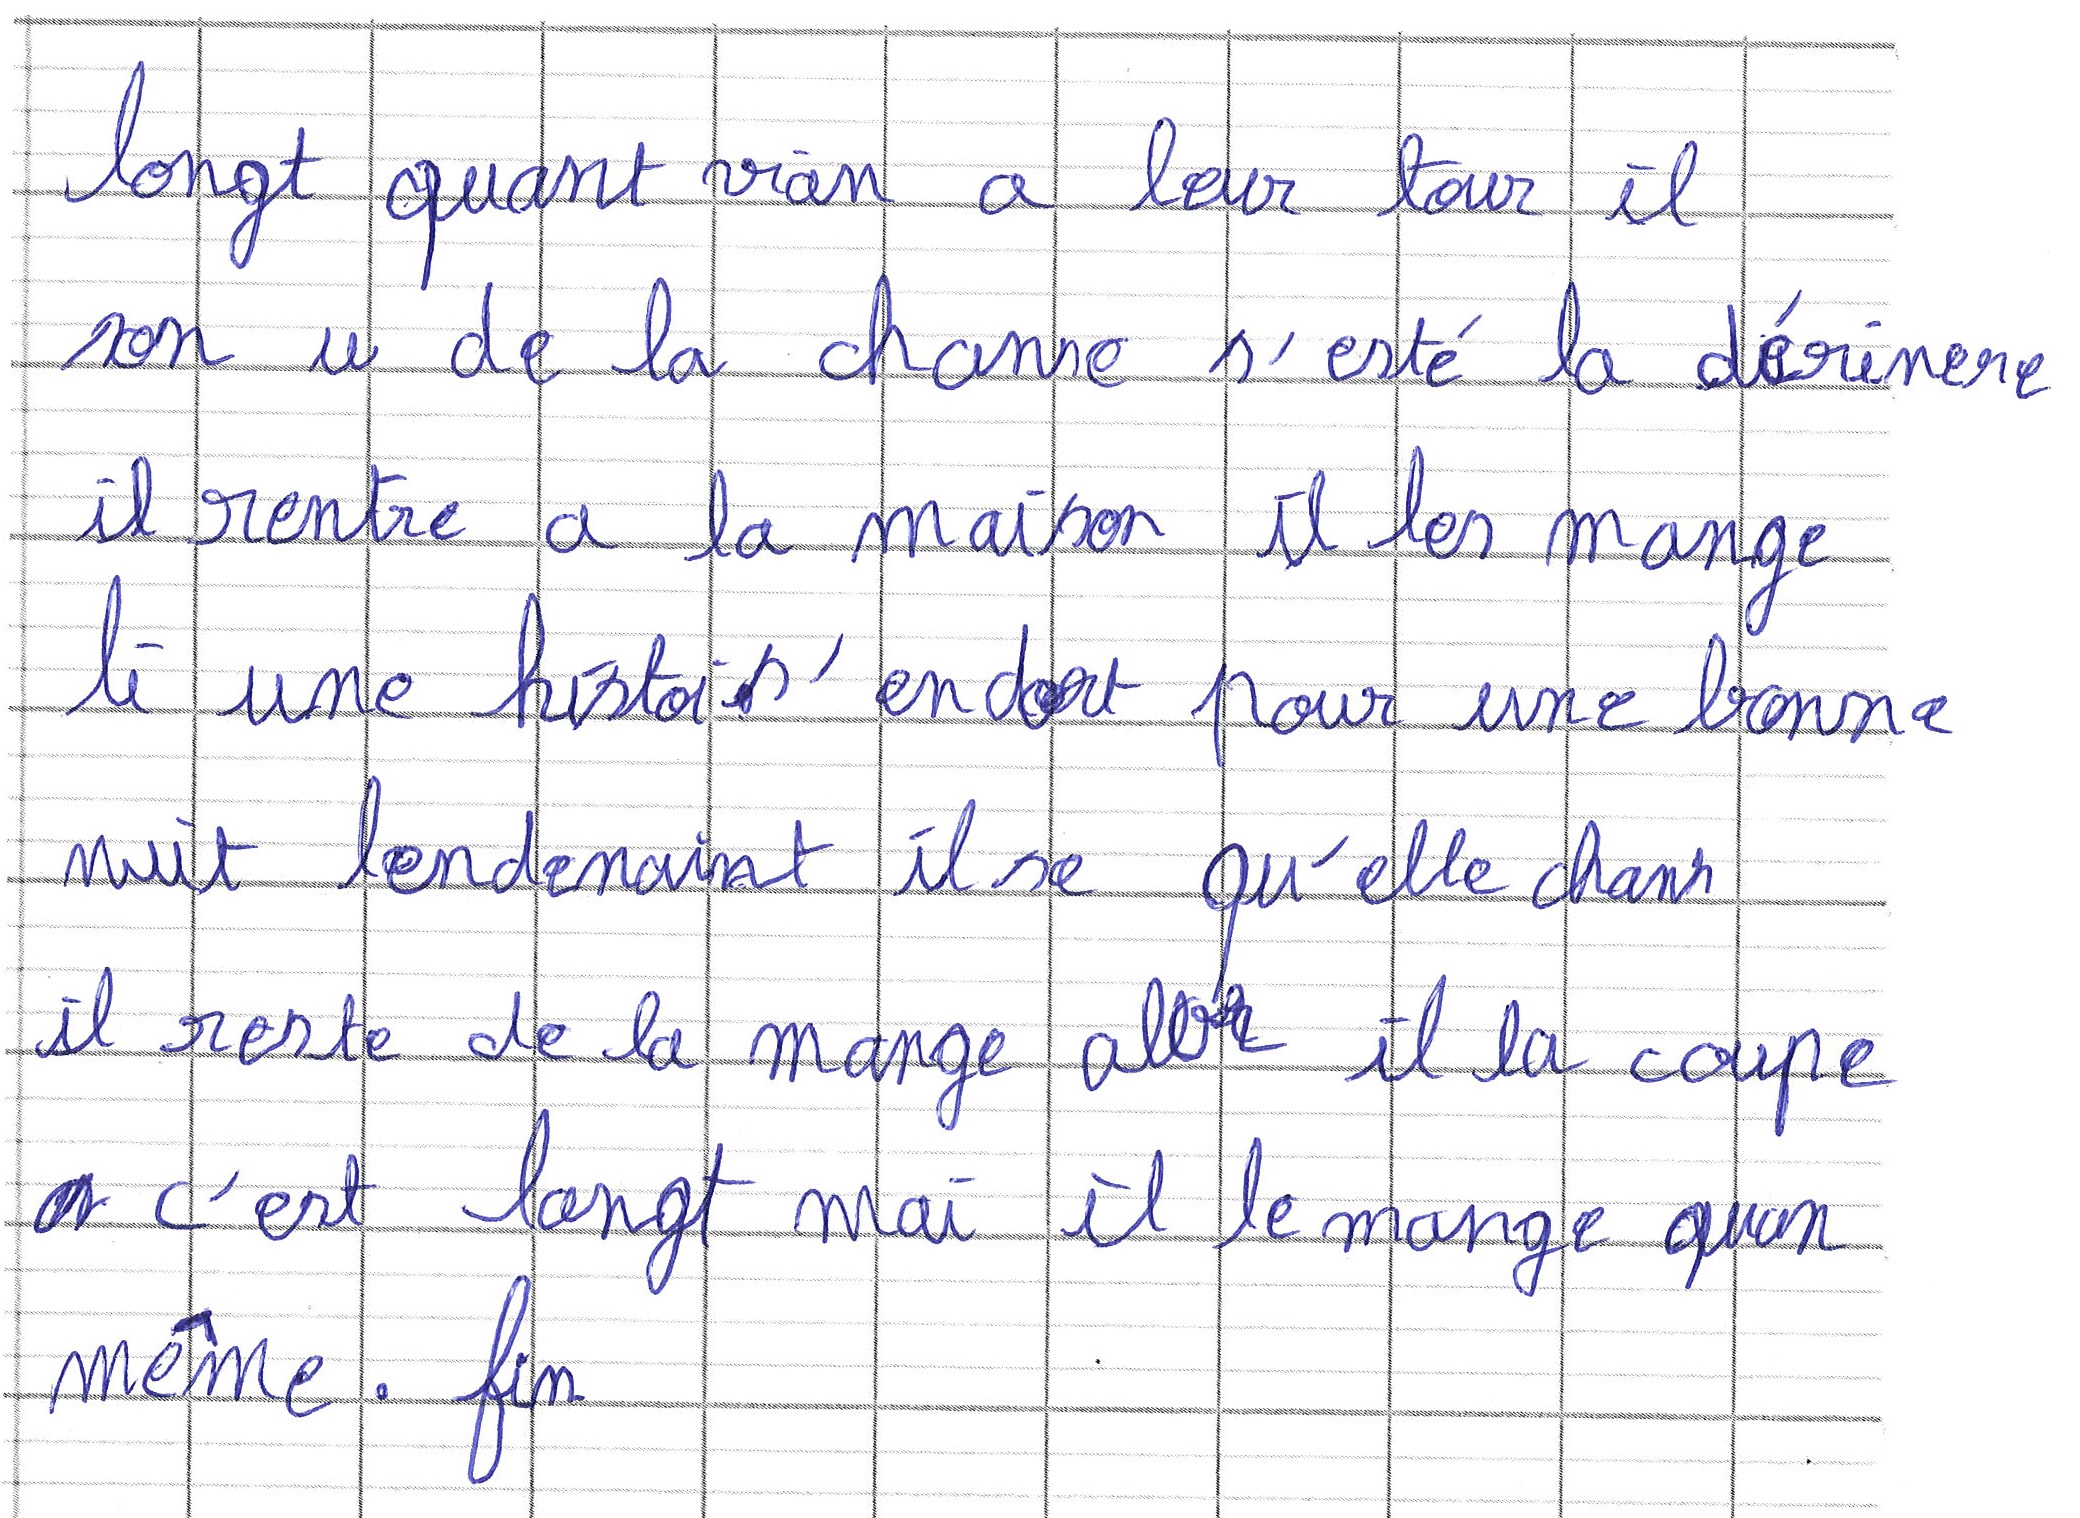 longt quant vian a leur tour il
son u de la chanse s'esté la dérinere
il rentre a la maison il les mange
li une histoi s'endort pour une bonne
nuit lendemaint il se qu'elle chans
il reste de la mange il la coupe
c'est longt mai il le mange quan
même. fin